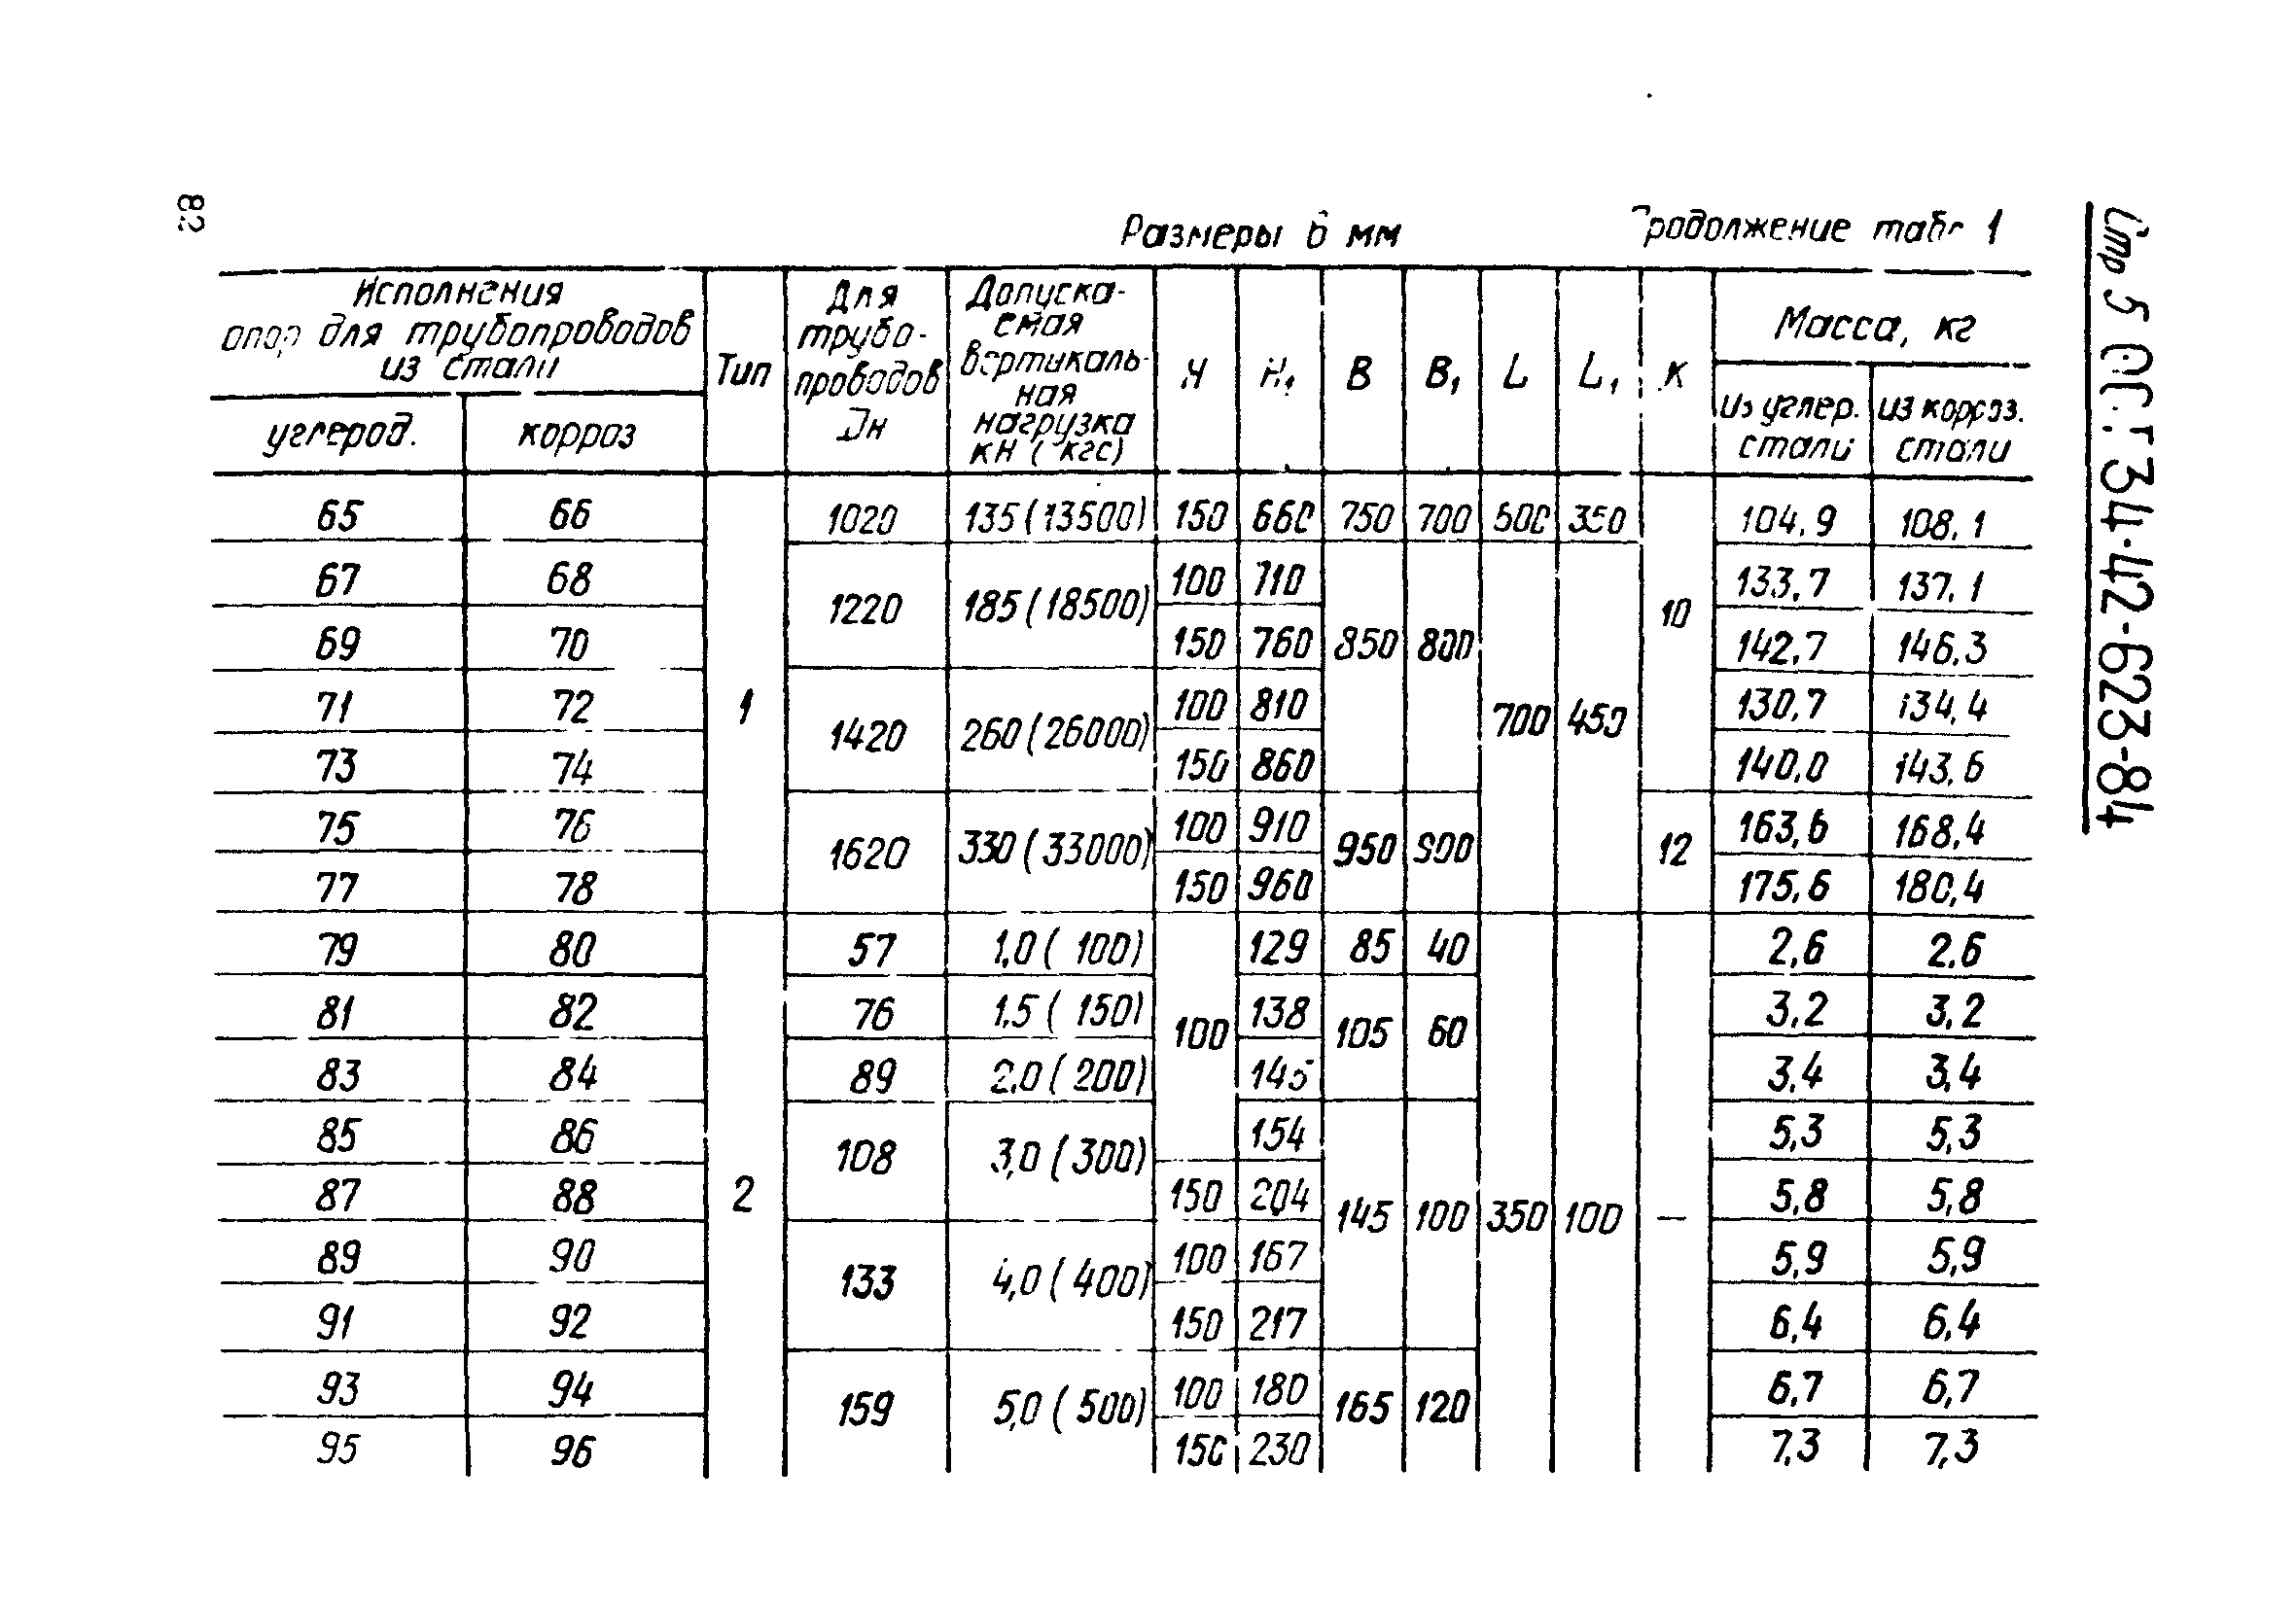 82
Размеры в мм
Продолжение табл 1
Стр 5 ОСТ 34-42-623-84
Исполнения
опор для трубопроводов
из стали
Тип
Для
трубо-
проводов
Dн
Допуска-
емая
вертикаль-
ная
нагрузка
кН (кгс)
H H₁ B B₁ L L₁ K
Масса, кг
углерод. корроз
из углер.
стали
из корроз.
стали
65 66 1 1020 135 (13500) 150 660 750 700 600 350 10 104,9 108,1
67 68 1220 185 (18500) 100 710 850 800 700 450 133,7 137,1
69 70 150 760 142,7 146,3
71 72 1420 260 (26000) 100 810 130,7 134,4
73 74 150 860 140,0 143,6
75 76 1620 330 (33000) 100 910 950 900 12 163,6 168,4
77 78 150 960 175,6 180,4
79 80 2 57 1,0 (100) 100 129 85 40 350 100 — 2,6 2,6
81 82 76 1,5 (150) 138 105 60 3,2 3,2
83 84 89 2,0 (200) 145 3,4 3,4
85 86 108 3,0 (300) 154 145 100 5,3 5,3
87 88 150 204 5,8 5,8
89 90 133 4,0 (400) 100 167 5,9 5,9
91 92 150 217 6,4 6,4
93 94 159 5,0 (500) 100 180 165 120 6,7 6,7
95 96 150 230 7,3 7,3